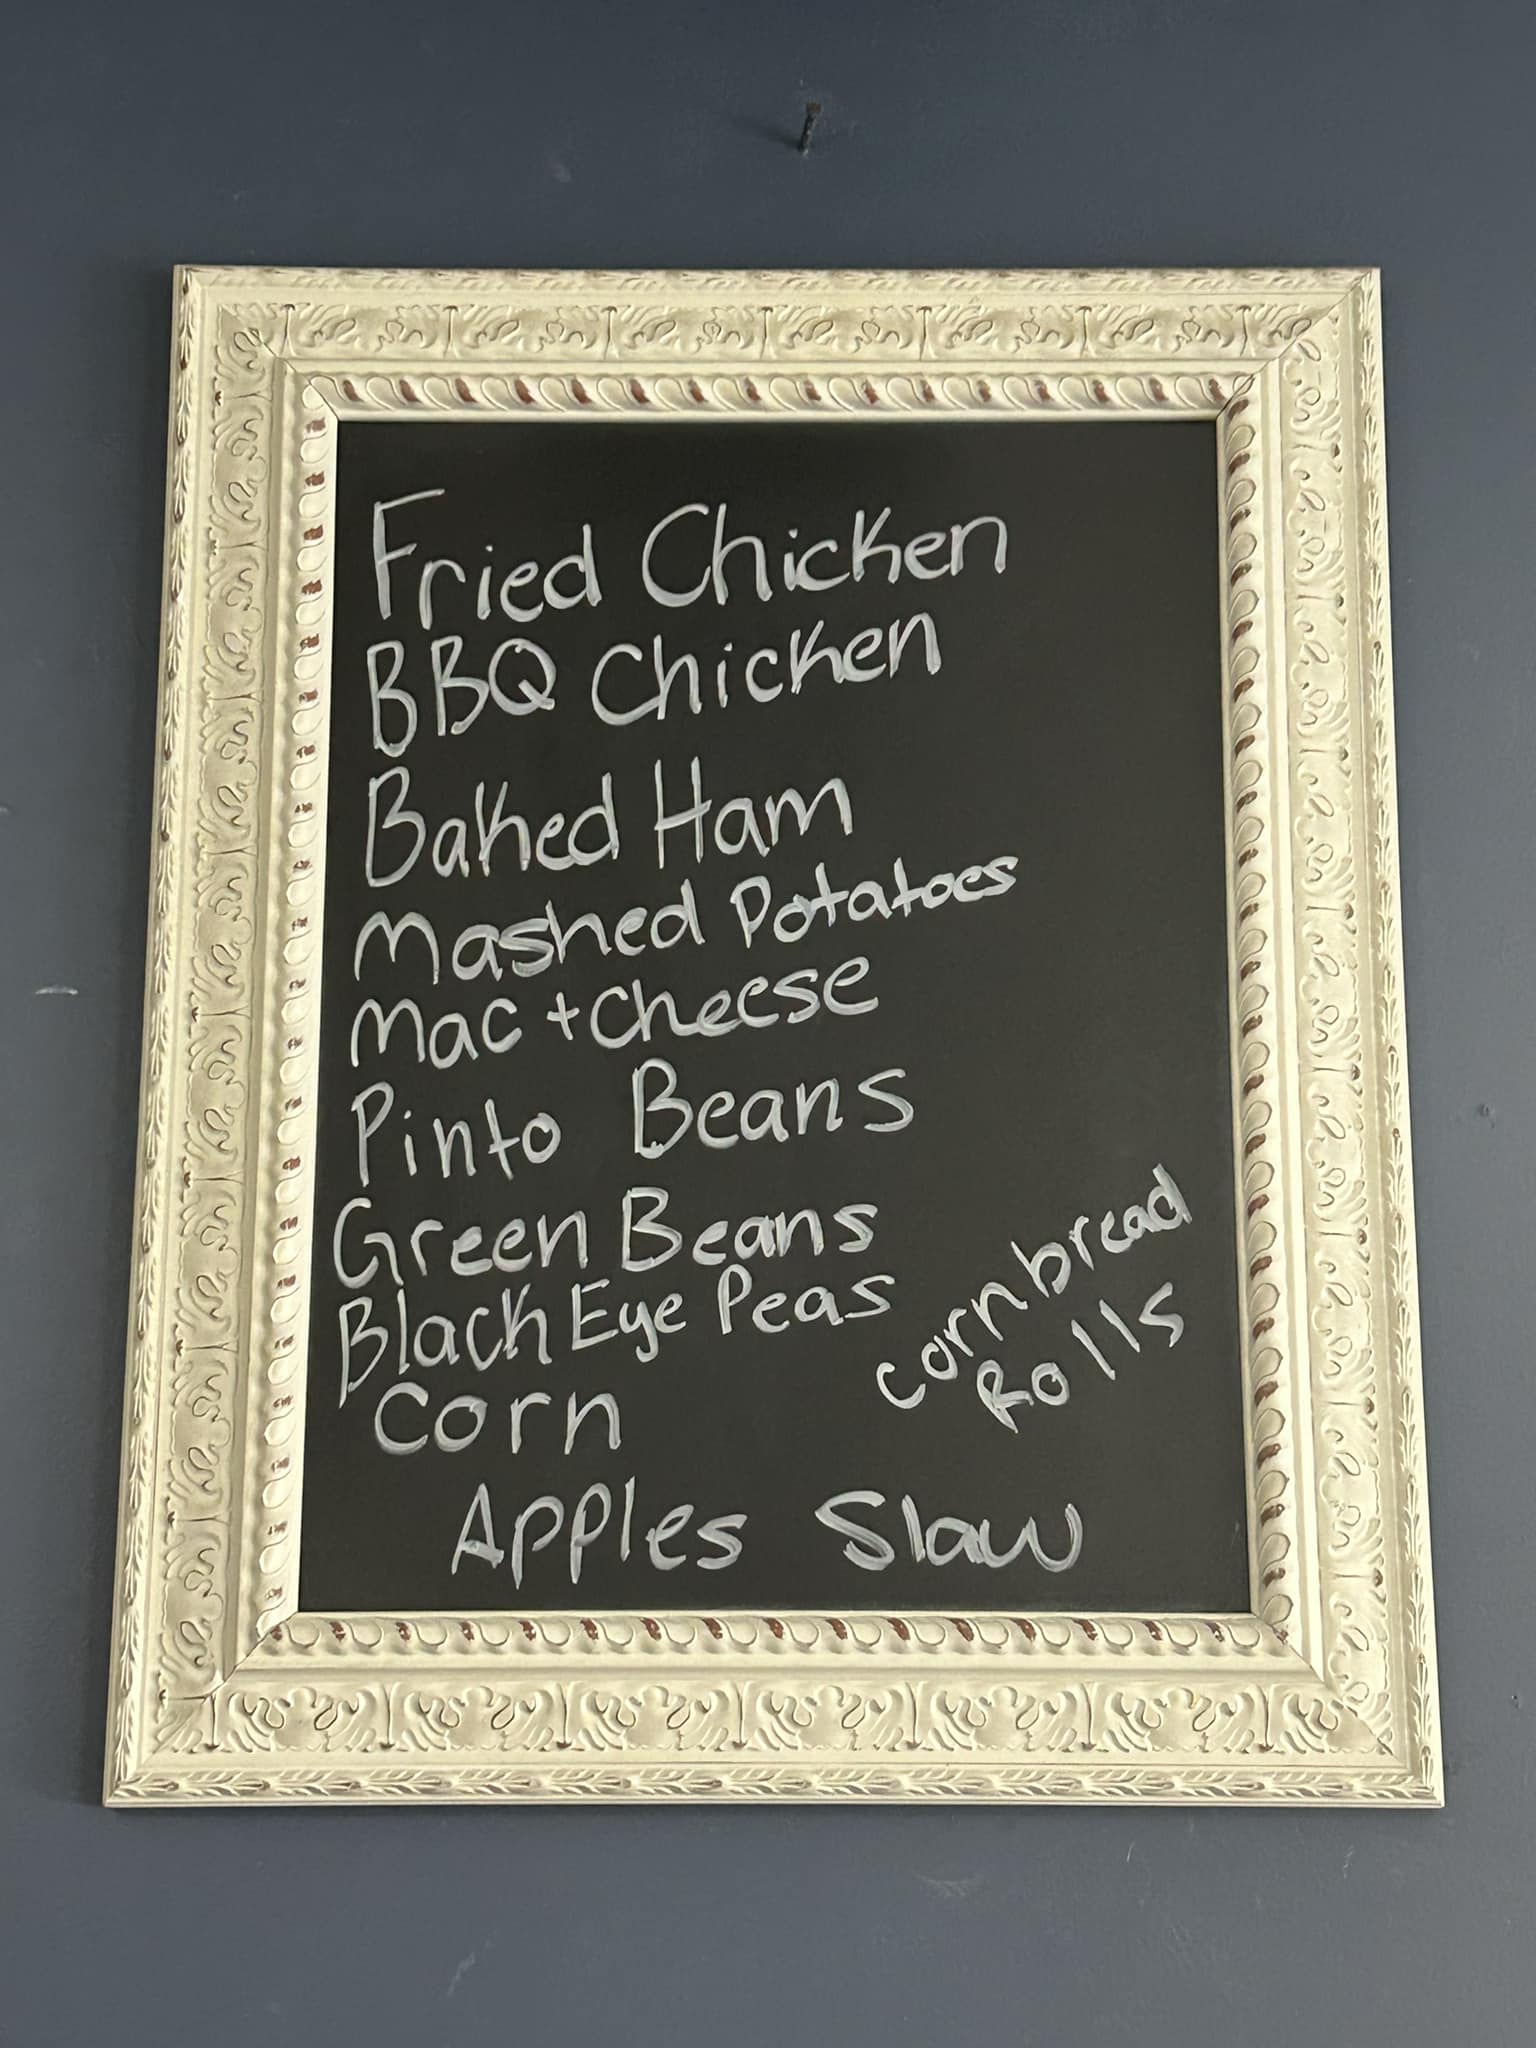 Fried Chicken
BBQ Chicken
Baked Ham
Mashed Potatoes
Mac + Cheese
Pinto Beans
Green Beans
Black Eye Peas
Corn
Cornbread
Rolls
Apples Slaw